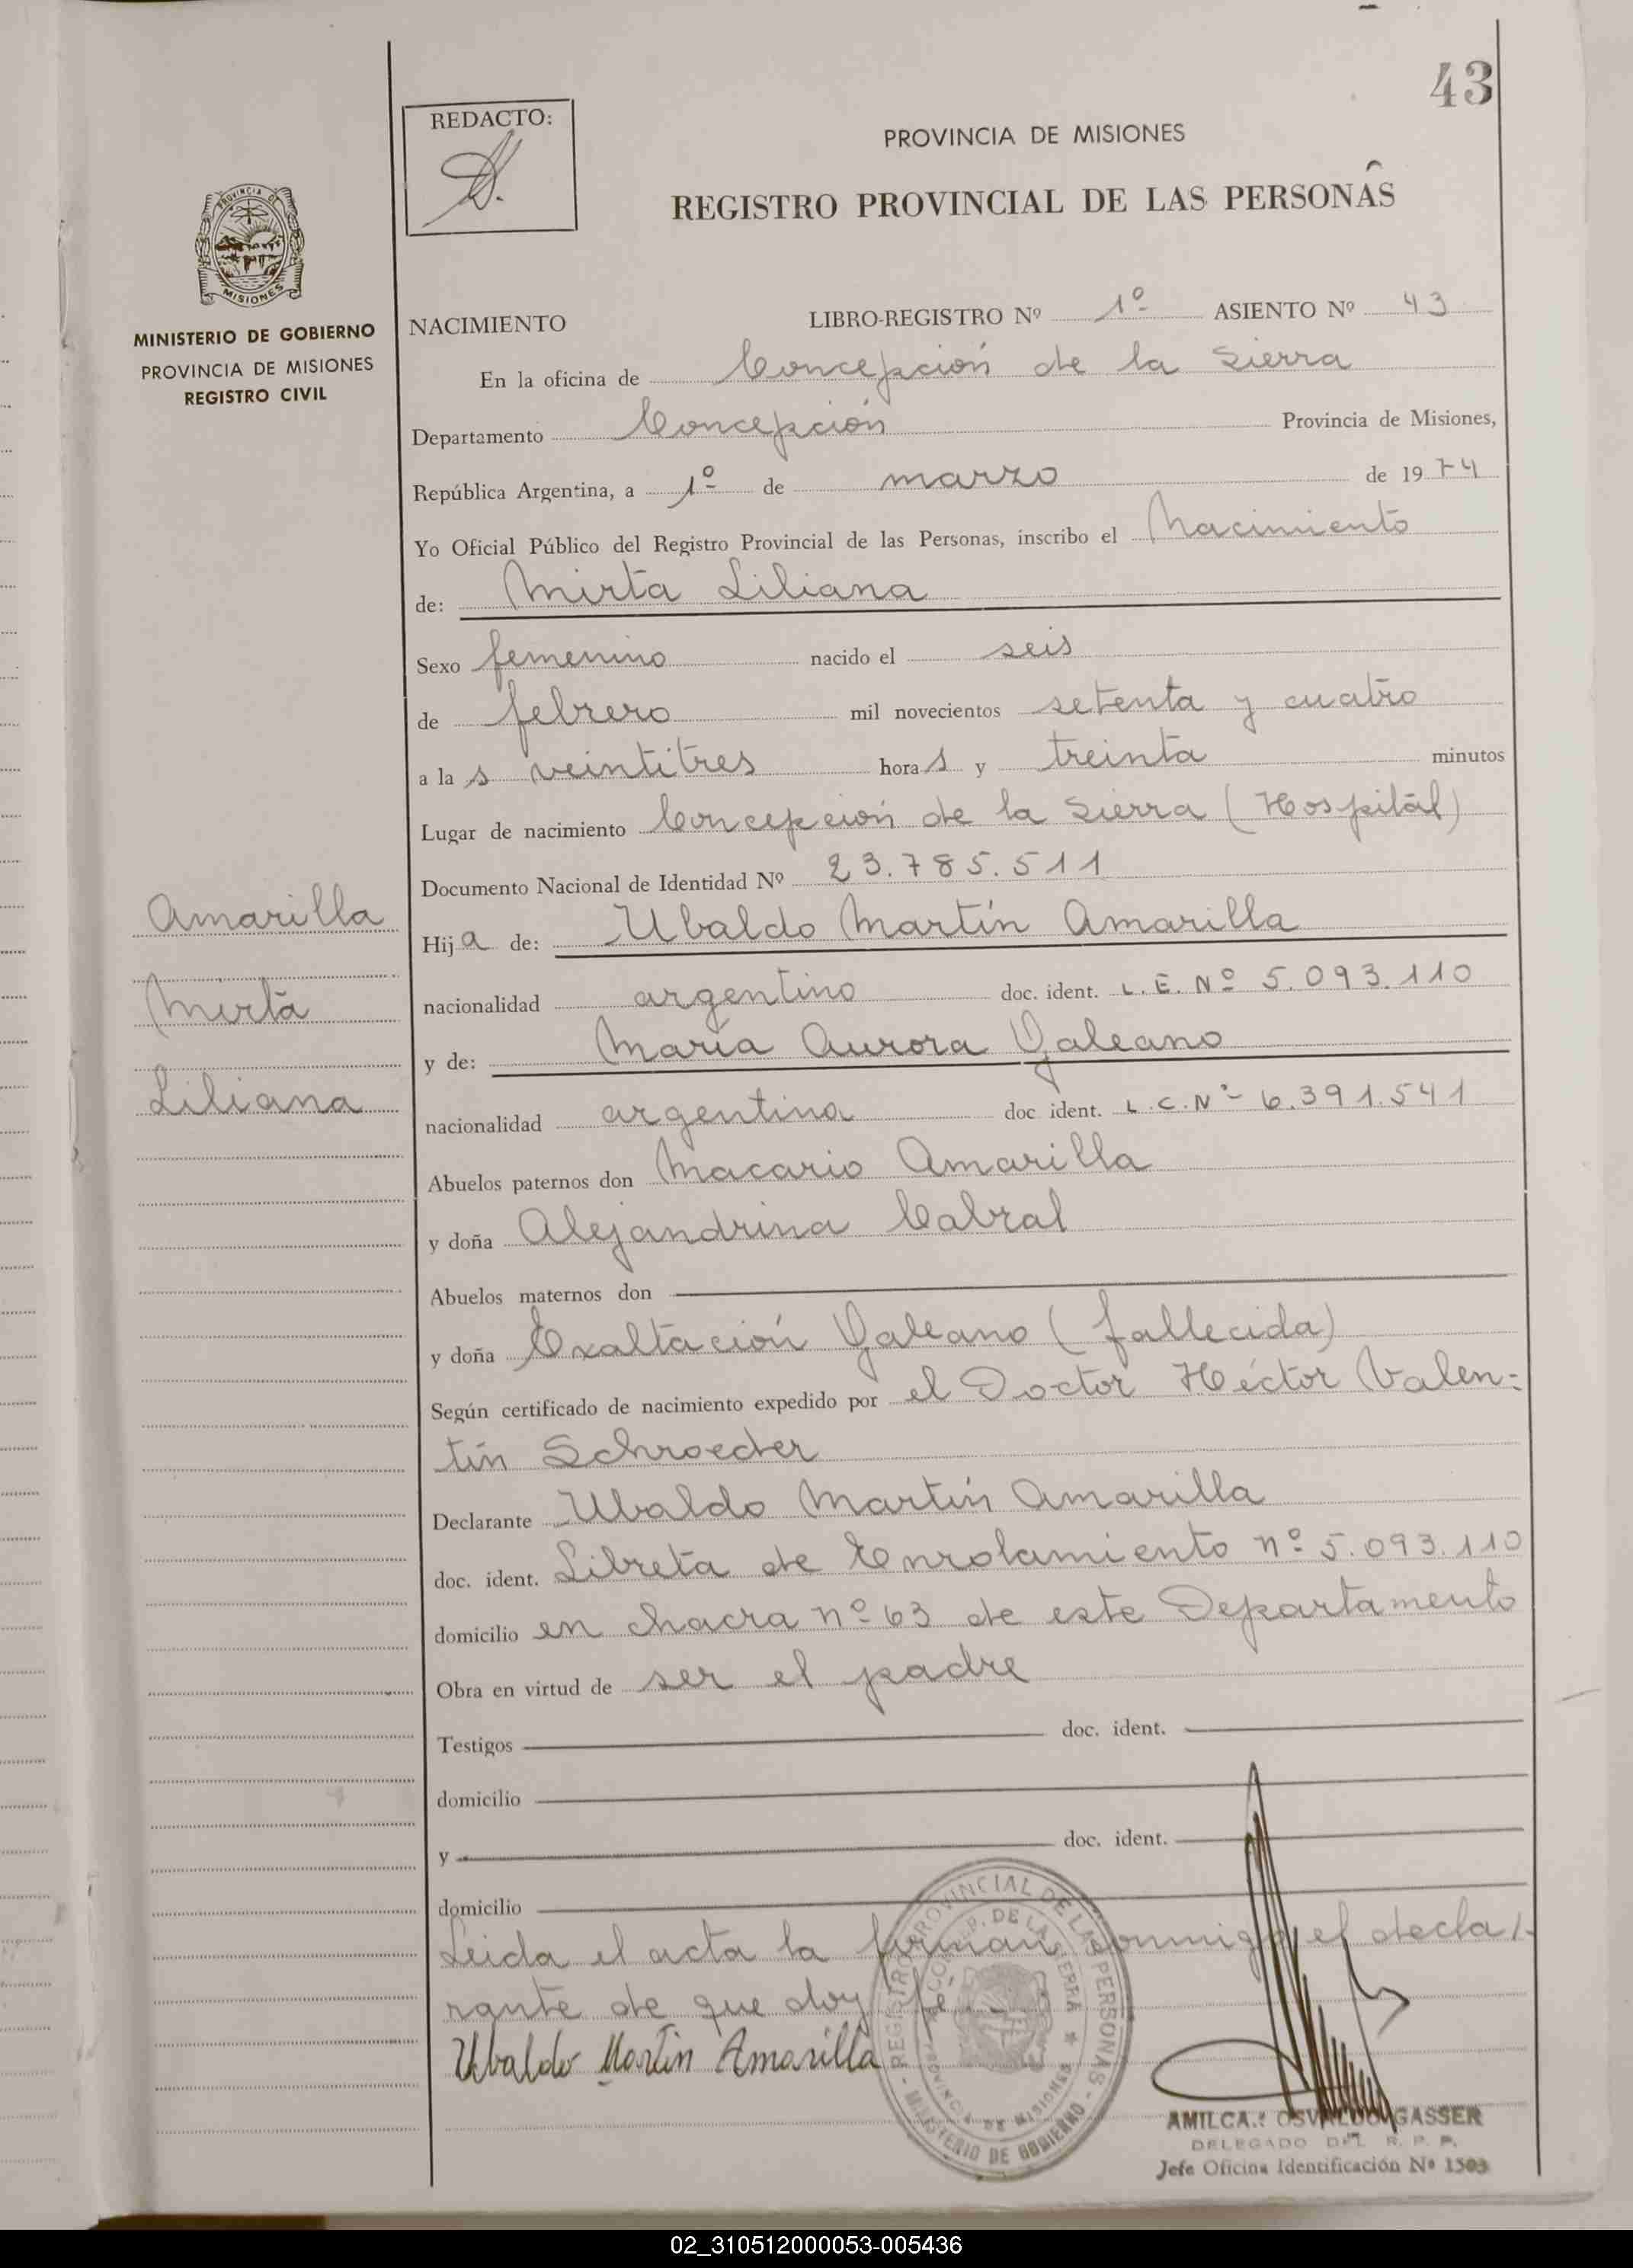 43
REDACTO:
PROVINCIA DE MISIONES
REGISTRO PROVINCIAL DE LAS PERSONAS
PROVINCIA DE
MISIONES
MINISTERIO DE GOBIERNO
PROVINCIA DE MISIONES
REGISTRO CIVIL
NACIMIENTO LIBRO-REGISTRO Nº 1º ASIENTO Nº 43
En la oficina de Concepción de la Sierra
Departamento Concepción Provincia de Misiones,
República Argentina, a 1º de marzo de 1974
Yo Oficial Público del Registro Provincial de las Personas, inscribo el Nacimiento
de: Mirta Liliana
Sexo femenino nacido el seis
de febrero mil novecientos setenta y cuatro
a la s veintitres hora s y treinta minutos
Lugar de nacimiento Concepción de la Sierra (Hospital)
Documento Nacional de Identidad Nº 23.785.511
Amarilla
Mirta
Liliana
Hija de: Ubaldo Martín Amarilla
nacionalidad argentino doc. ident. L.E. Nº 5.093.110
y de: María Aurora Galeano
nacionalidad argentina doc ident. L.C. Nº 6.391.541
Abuelos paternos don Macario Amarilla
y doña Alejandrina Cabral
Abuelos maternos don
y doña Exaltación Galeano (fallecida)
Según certificado de nacimiento expedido por el Doctor Héctor Valen=
tín Schroeder
Declarante Ubaldo Martín Amarilla
doc. ident. Libreta de Enrolamiento nº 5.093.110
domicilio en chacra nº 63 de este Departamento
Obra en virtud de ser el padre
Testigos doc. ident.
domicilio
y doc. ident.
domicilio
Leida el acta la firman conmigo el decla-
rante de que doy fé
Ubaldo Martin Amarilla
REGISTRO PROVINCIAL DE LAS PERSONAS - MINISTERIO DE GOBIERNO -
DE LA SIERRA ★ PROVINCIA DE MISIONES
AMILCAR OSVALDO GASSER
DELEGADO DEL R. P. P.
Jefe Oficina Identificación Nº 1503
02_310512000053-005436